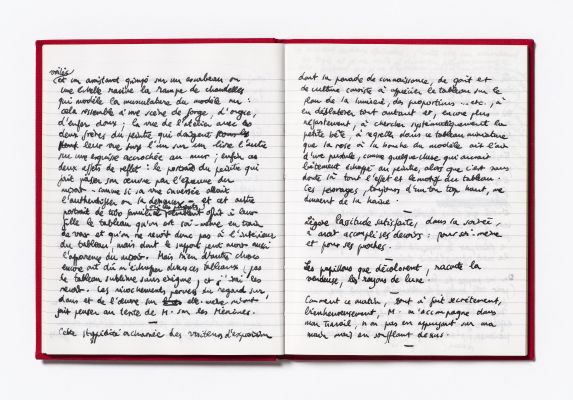 voilés
et un amistard grimpé sur un escabeau ou
une échelle ravive la rampe de chandelles
qui modèle la musculature du modèle nu :
cela ressemble à une scène de forge, d'orgie,
d'enfer doux ; la vie de l'atelier avec les
deux frères du peintre qui daignent
leur vue l'un sur un livre l'autre
sur une esquisse accrochée au mur ; enfin ces
deux effets de reflet : le portrait du peintre qui
fait passer son œuvre par l'épreuve du
miroir comme si sa vue inversée allait
l'authentifier ou la dénoncer - et cet autre
portrait de famille offrit à leur
fille le tableau qu'on est soi-même en train
de voir et qu'on ne revoit donc pas à l'intérieur
du tableau, mais dont le support peut avoir aussi
l'apparence du miroir. Mais bien d'autres choses
encore ont dû m'échapper dans ces tableaux
le tableau sublime sans énigme, et
revoir. Les ricochements pervers du regard sur
dans et de l'œuvre sur elle-même m'ont
fait penser au texte de M. sur les Ménines.
—
Cette stupidité acharnée des visiteurs d'exposition
dont la parade de connaissance, de goût et
de culture consiste à apprécier le tableau sur le
plan de la lumière, des proportions ... etc., à
en déblatérer tout autant et, encore plus
injustement, à chercher systématiquement la
petite bête, à regretter dans ce tableau miniature
que la rose ou la bouche du modèle ait l'air
d'une pustule, comme quelque chose qui aurait
bêtement échappé au peintre, alors que c'est sans
doute là tout l'effet et le motif du tableau.
Ces jugements, toujours d'un ton trop haut, me
donnent de la haine.
—
Légère lassitude satisfaite, dans la soirée,
d'avoir accompli ses devoirs : pour soi-même
et pour ses proches.
—
Les papillons que décolorent, raconte la
vendeuse, les rayons de lune.
—
Comment ce matin, tout à fait secrètement,
heureusement, M. m'accompagne dans
mon travail, non pas en appuyant sur ma
main mais en soufflant dessus.
—